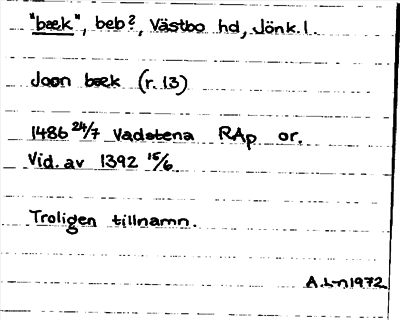 "bæk", beb?, Västbo hd, Jönk.l.
Joon bæk (r. 13)
1486 24/7 Vadstena RAp or.
Vid. av 1392 15/6.
Troligen tillnamn.
A.L-n 1972